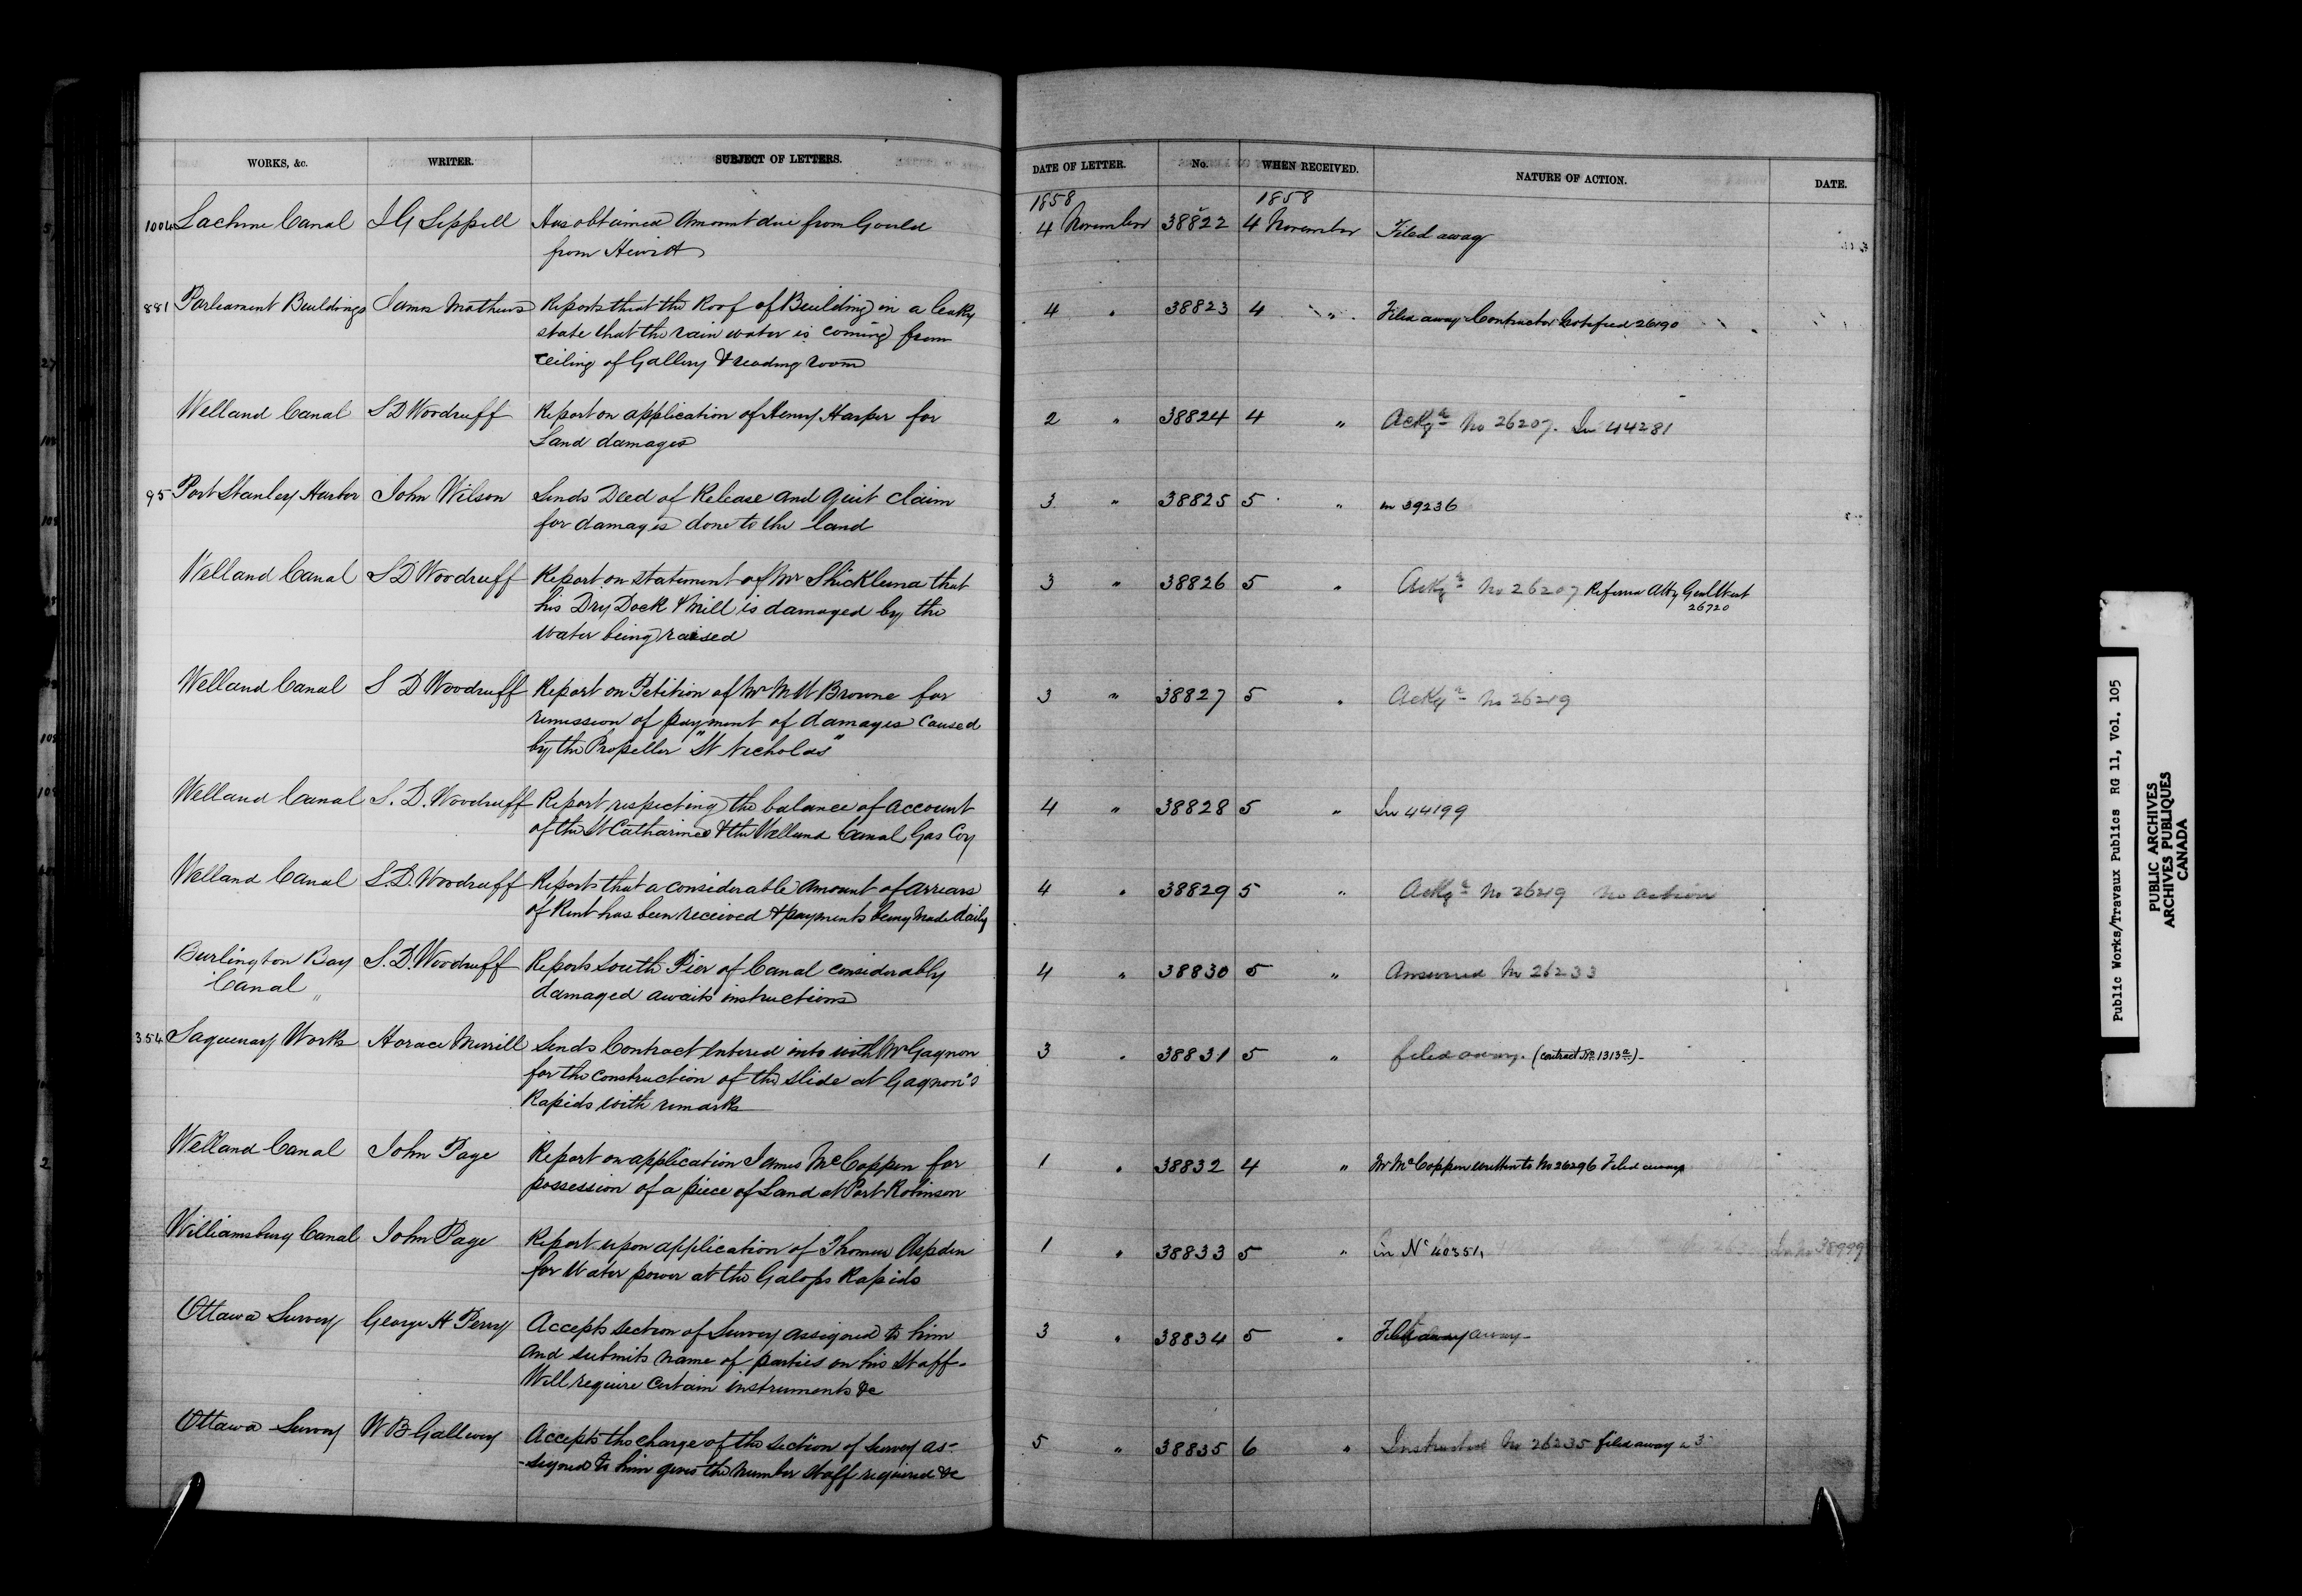 WORKS, &c. WRITER. SUBJECT OF LETTERS. DATE OF LETTER. No. WHEN RECEIVED. NATURE OF ACTION. DATE.
1858 1858
1004 Lachine Canal J G Sippell Has obtained Amount due from Gould 4 November 38822 4 November Filed away
from Hewitt
881 Parliament Buildings James Mathews Reports that the Roof of Building in a leaky 4 " 38823 4 " Filed away Contractor Notified 26190
state that the rain water is coming from
ceiling of Gallery & reading room
Welland Canal S D Woodruff Report on application of Henry Harper for 2 " 38824 4 " Ackgd No 26207. In 44281
Land damages
95 Port Stanley Harbor John Wilson Sends Deed of Release and Quit Claim 3 " 38825 5 " in 39236
for damages done to the land
Welland Canal S D Woodruff Report on statement of Mr Shickluna that 3 " 38826 5 " Ackgd No 26207 Referred Atty Genl West
his Dry Dock & Mill is damaged by the 26720
Water being raised
Welland Canal S D Woodruff Report on Petition of Mr M W Browne for 3 " 38827 5 " Ackgd No 26219
remission of payment of damages caused
by the Propeller "St Nicholas"
Welland Canal S. D. Woodruff Report respecting the balance of Account 4 " 38828 5 " In 44199
of the St Catharines & the Welland Canal Gas Coy
Welland Canal S. D. Woodruff Reports that a considerable amount of arrears 4 " 38829 5 " Ackgd No 26219 No action
of Rent has been received & payments being made daily
Burlington Bay S. D. Woodruff Reports South Pier of Canal considerably 4 " 38830 5 " Answered No 26233
Canal damaged awaits instructions
354 Saguenay Works Horace Merrill Sends Contract Entered into with Mr Gagnon 3 " 38831 5 " filed away. (contract No 1313a)
for the construction of the slide at Gagnon's
Rapids with remarks
Welland Canal John Page Report on application James McCoppen for 1 " 38832 4 " Mr McCoppen written to No 26296 Filed away
possession of a piece of Land at Port Robinson
Williamsburg Canal John Page Report upon application of Thomas Aspden 1 " 38833 5 " in No 40351, In No 38999
for Water power at the Galops Rapids
Ottawa Survey George H Perry Accepts section of Survey assigned to him 3 " 38834 5 " Filed away
and submits name of parties on his Staff.
Will require certain instruments &c
Ottawa Survey W B Gallwey Accepts the charge of the section of Survey as- 5 " 38835 6 " Instructed No 26235 filed away
-signed to him gives the number staff required &c
Public Works/Travaux Publics RG 11, Vol. 105
PUBLIC ARCHIVES
ARCHIVES PUBLIQUES
CANADA